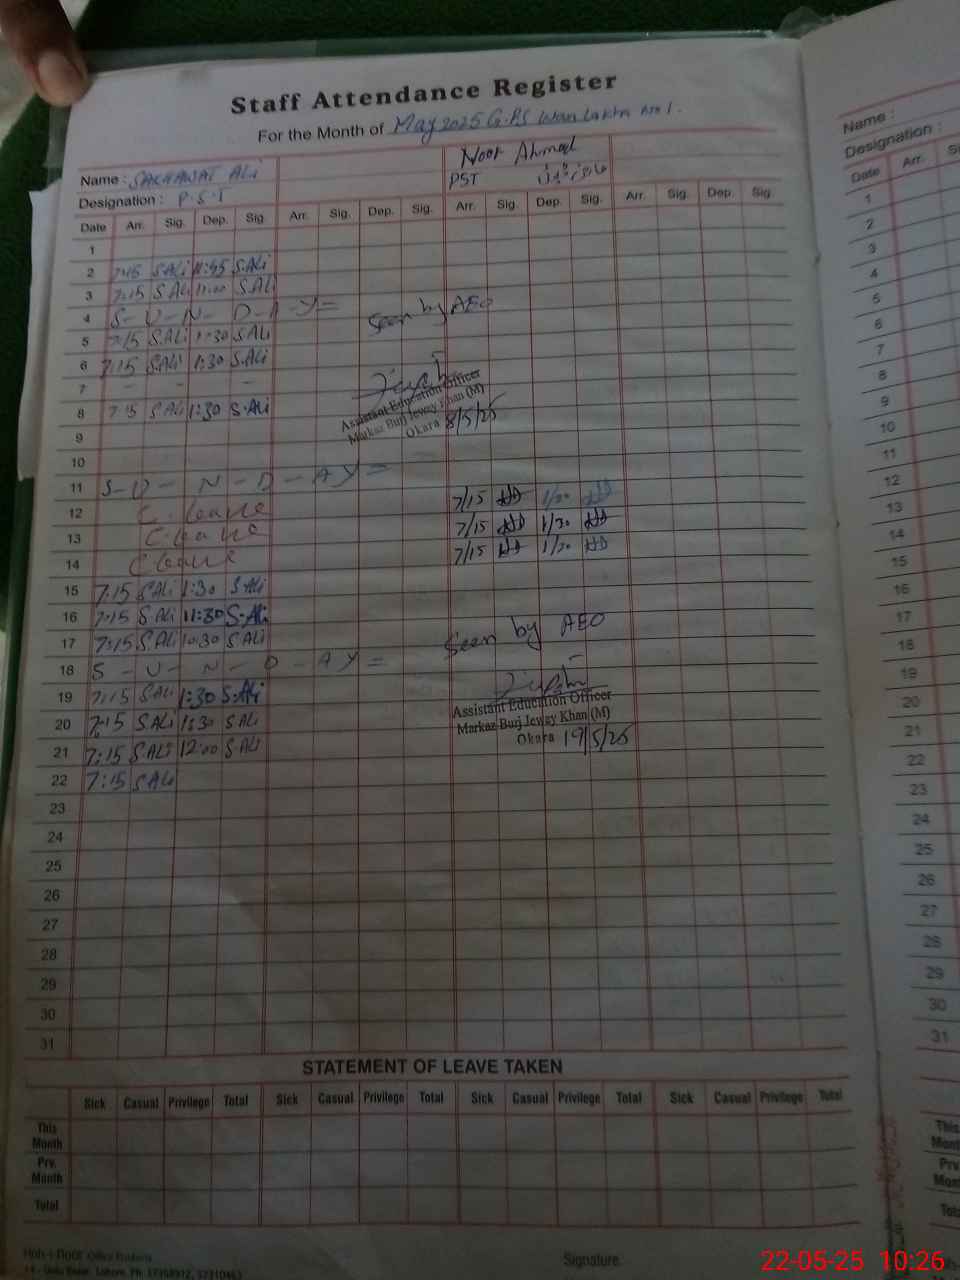 Staff Attendance Register
For the Month of May 2025 G.P.S No 1.
Name : SAKHAWAT ALI Noor Ahmad
Designation : P.S.T PST
Date Arr. Sig. Dep. Sig. Arr. Sig. Dep. Sig. Arr. Sig. Dep. Sig. Arr. Sig. Dep. Sig.
1
2 7:15 S.ALi 11:45 S.ALi
3 7:15 S.ALi 11:00 S.ALi
4 S-U-N-D-A-Y=
Seen by AEO
5 7:15 S.ALi 1:30 S.ALi
6 7:15 S.ALi 1:30 S.ALi
7 - - - -
Assistant Education Officer
Markaz Burj Jeway Khan (M)
Okara 8/5/25
8 7:15 S.ALi 1:30 S.ALi
9
10
11 S-U-N-D-AY=
12 C.leave 7/15 1/30
13 C.leave 7/15 1/30
14 C leave 7/15 1/30
15 7:15 S.ALi 1:30 S.ALi
16 7:15 S.ALi 11:30 S.ALi
17 7:15 S.ALi 10:30 S.ALi
Seen by AEO
18 S-U-N-D-AY=
19 7:15 S.ALi 1:30 S.ALi
Assistant Education Officer
Markaz Burj Jeway Khan (M)
Okara 19/5/25
20 7:15 S.ALi 1:30 S.ALi
21 7:15 S.ALi 12:00 S.ALi
22 7:15 S.ALi
23
24
25
26
27
28
29
30
31
STATEMENT OF LEAVE TAKEN
Sick Casual Privilege Total Sick Casual Privilege Total Sick Casual Privilege Total Sick Casual Privilege Total
This Month
Prv. Month
Total
Signature
Name :
Designation :
Date Arr.
1
2
3
4
5
6
7
8
9
10
11
12
13
14
15
16
17
18
19
20
21
22
23
24
25
26
27
28
29
30
31
22-05-25 10:26